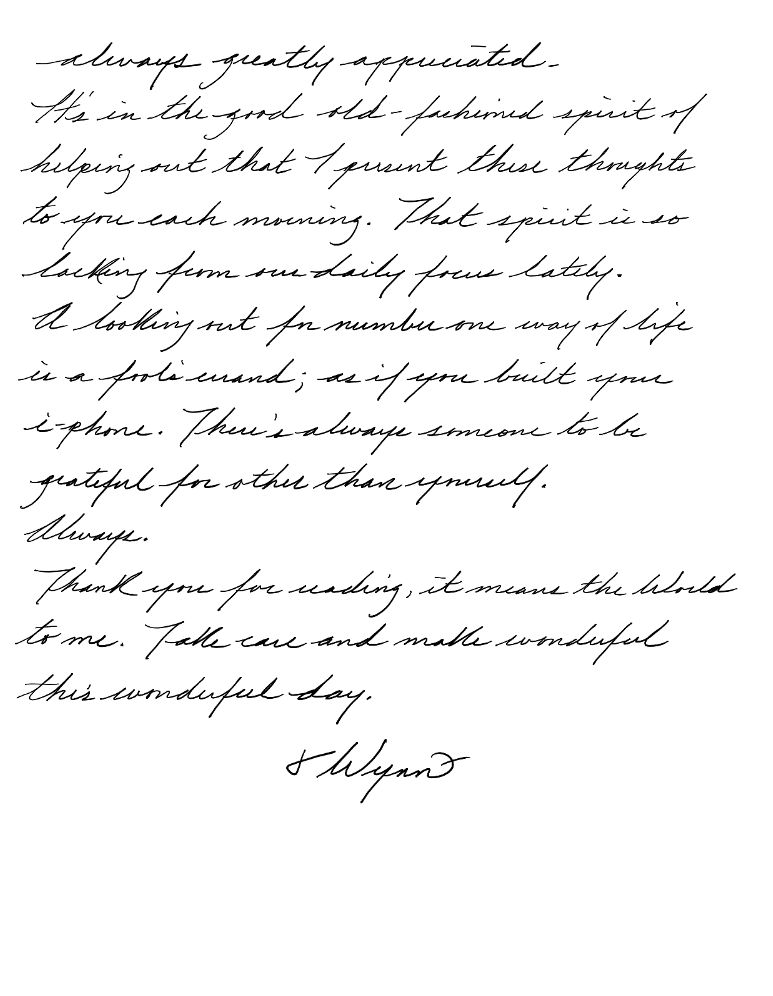 always greatly appreciated.
It's in the good old-fashioned spirit of
helping out that I present these thoughts
to you each morning. That spirit is so
lacking from our daily focus lately.
A looking out for number one way of life
is a fool's errand; as if you built your
i-phone. There's always someone to be
grateful for other than yourself.
Always.
Thank you for reading, it means the World
to me. Take care and make wonderful
this wonderful day.
Wynn